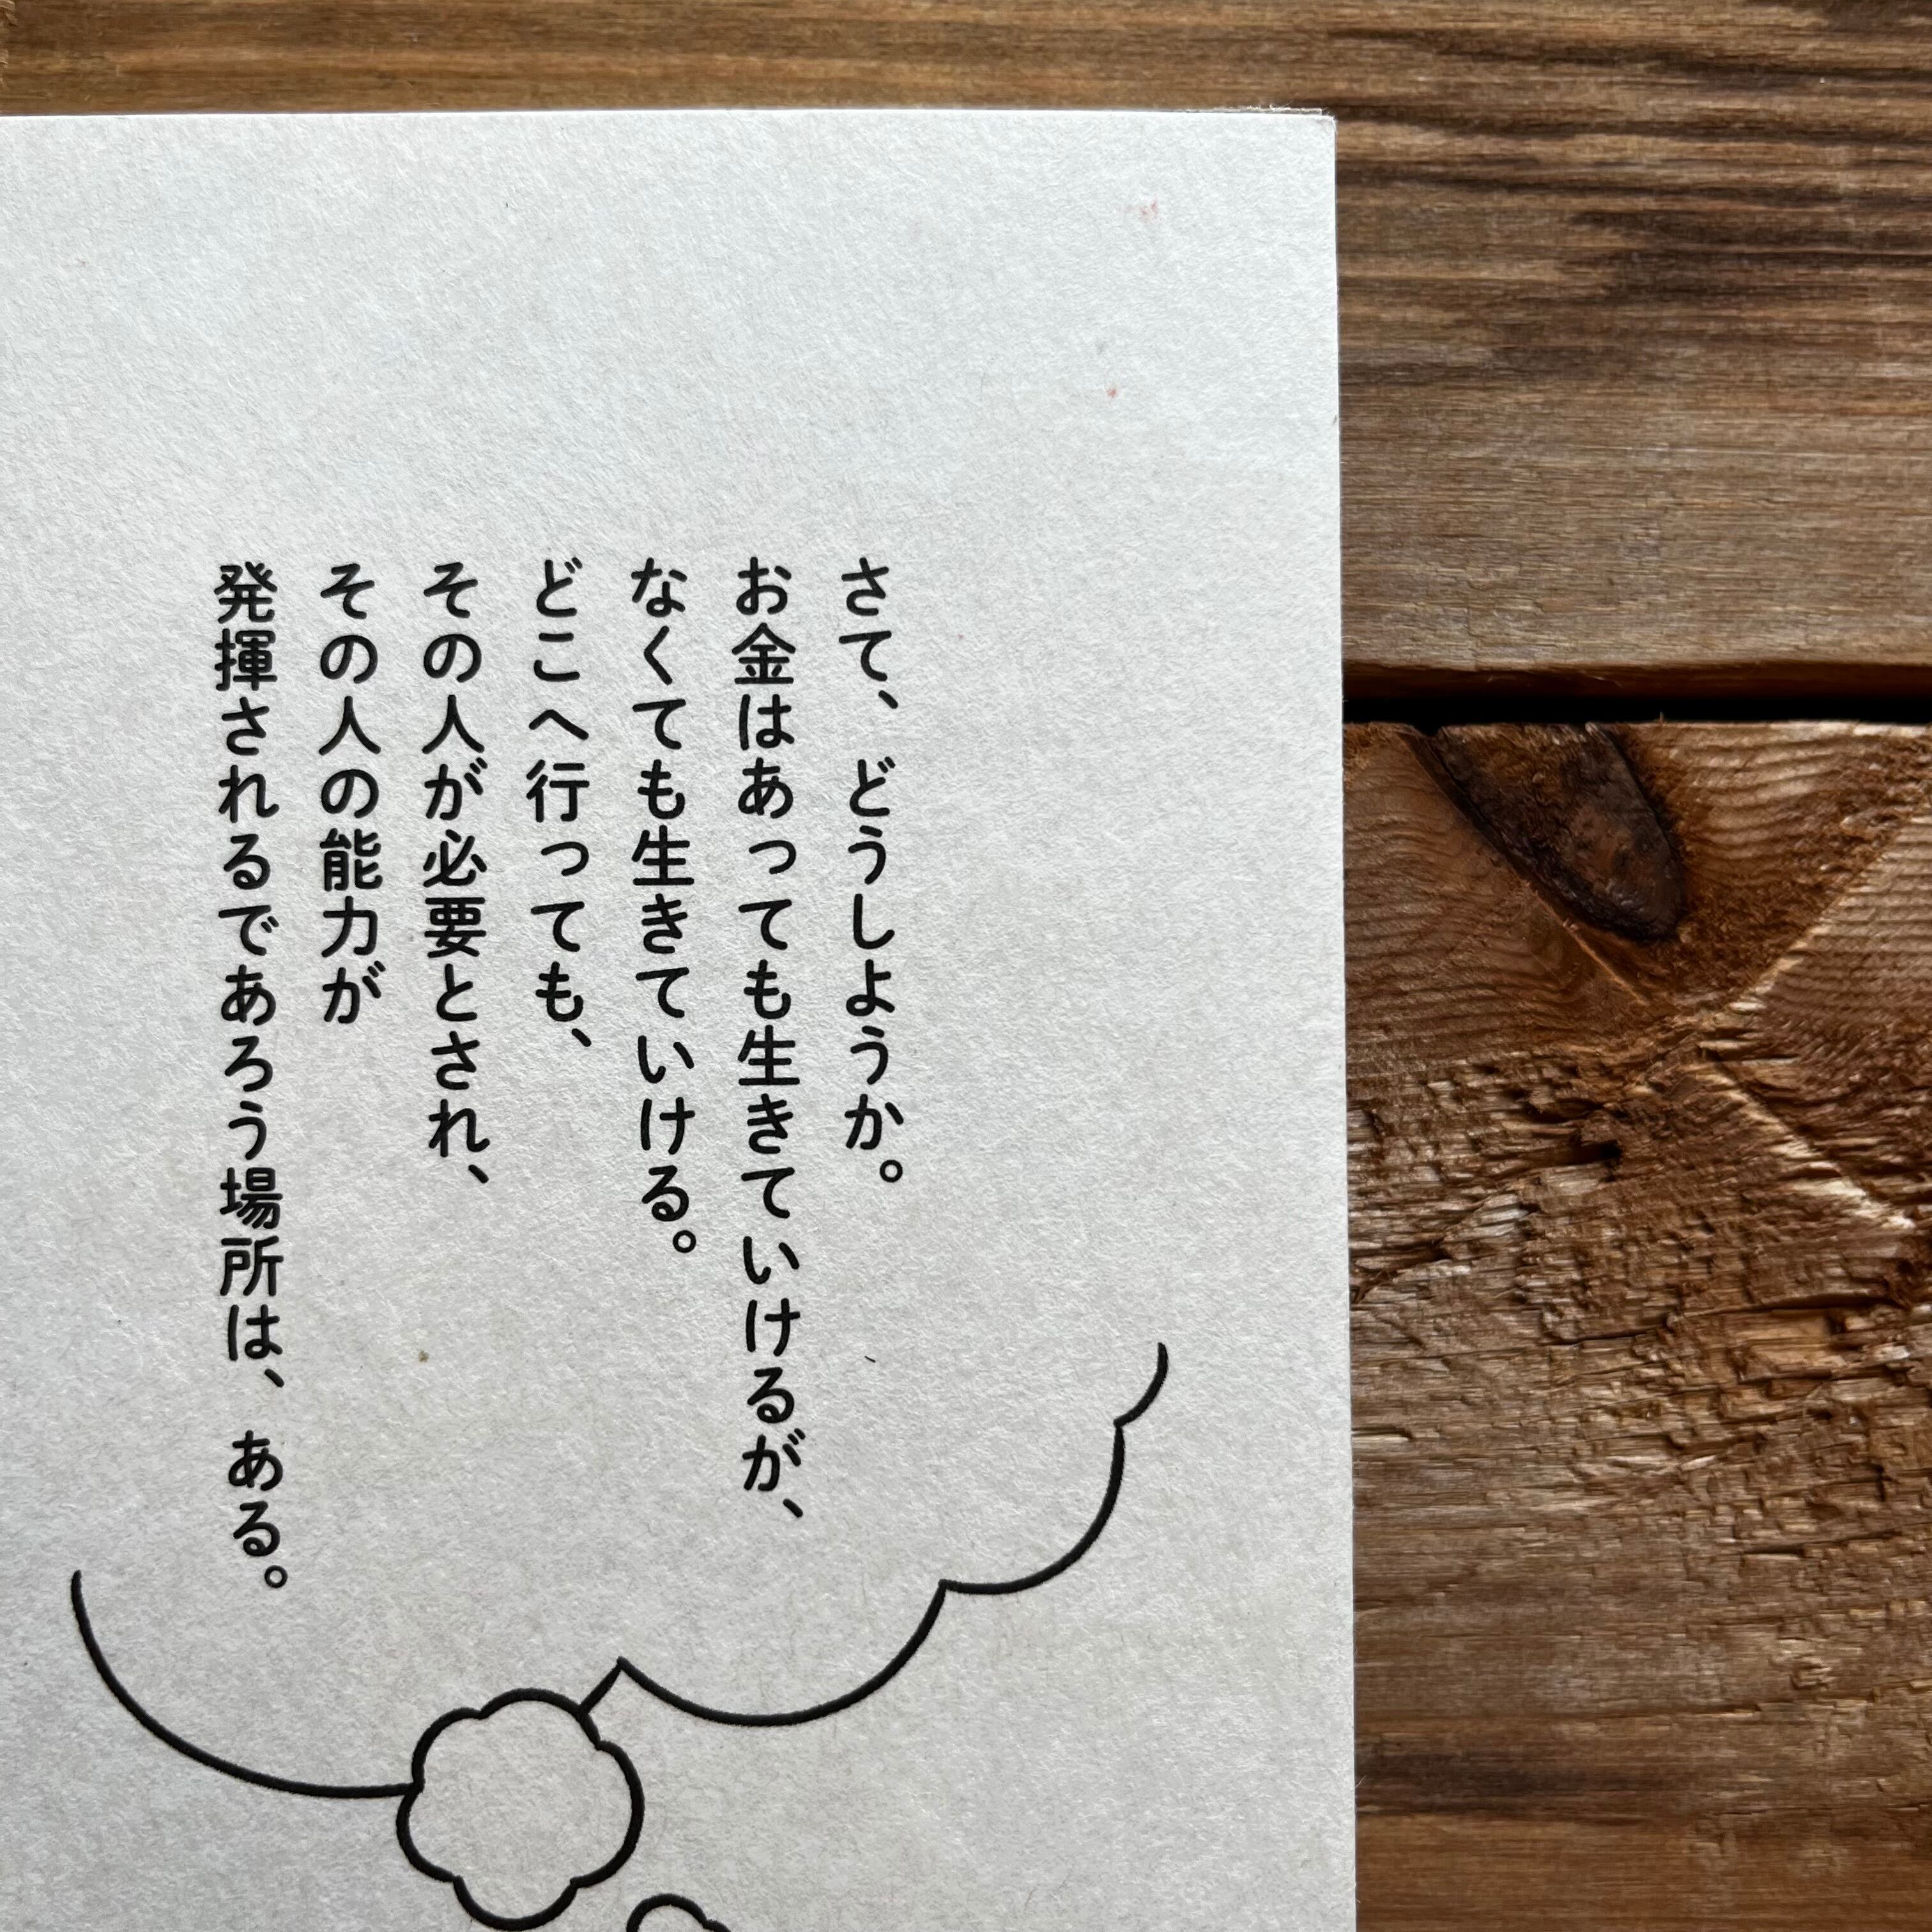 さて、どうしようか。
お金はあっても生きていけるが、
なくても生きていける。
どこへ行っても、
その人が必要とされ、
その人の能力が
発揮されるであろう場所は、ある。